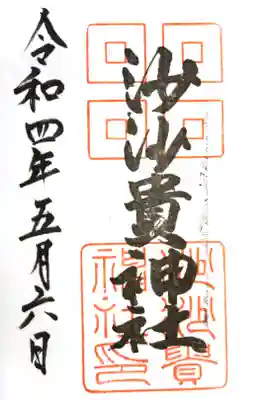 沙沙貴神社
令和四年五月六日
沙沙貴
神社印